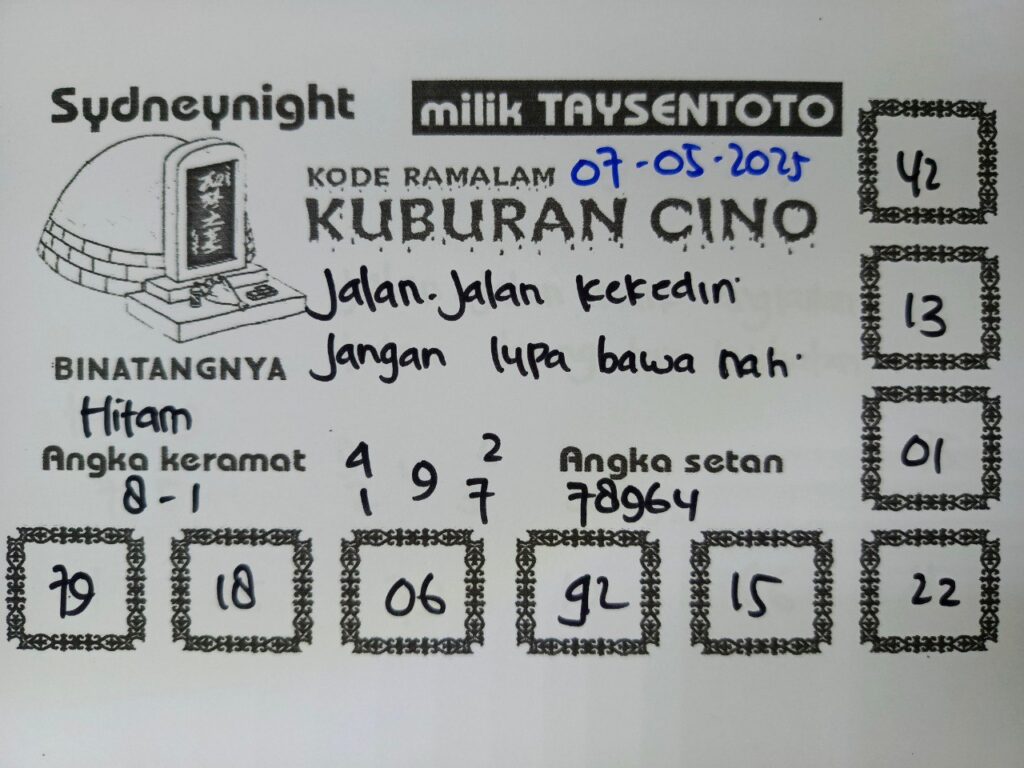 Sydneynight
milik TAYSENTOTO
KODE RAMALAM 07-05-2025
KUBURAN CINO
Jalan-Jalan kekedin
Jangan lupa bawa nah
BINATANGNYA
Hitam
Angka keramat
8-1
4 9 2
1 7
Angka setan
78964
42
13
01
79 18 06 92 15 22